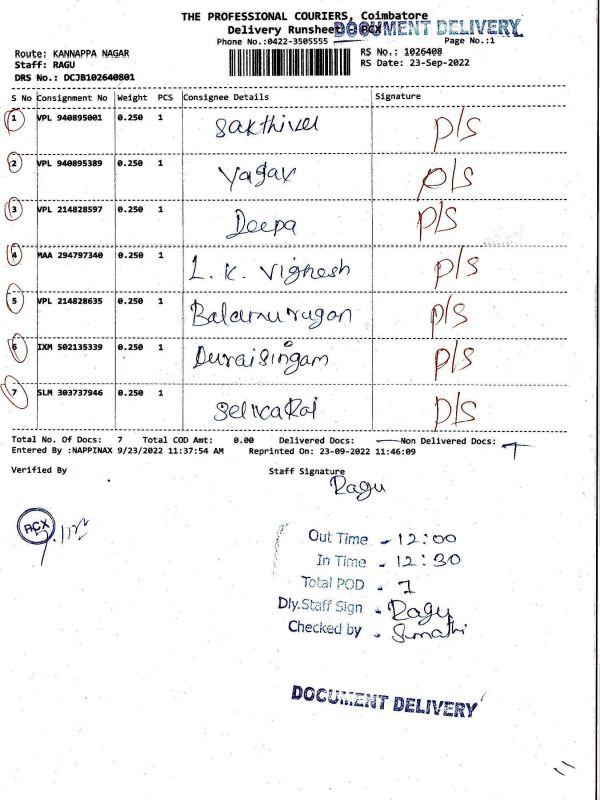 THE PROFESSIONAL COURIERS, Coimbatore
Delivery Runsheet
DOCUMENT DELIVERY
Phone No.:0422-3505555
Page No.:1
Route: KANNAPPA NAGAR
RS No.: 1026408
Staff: RAGU
RS Date: 23-Sep-2022
DRS No.: DCJB102640801
S No Consignment No Weight PCS Consignee Details Signature
1 VPL 940895001 0.250 1 Sakthivel P/S
2 VPL 940895389 0.250 1 P/S
3 VPL 214828597 0.250 1 Deepa P/S
4 MAA 294797340 0.250 1 L.K. Vignesh P/S
5 VPL 214828635 0.250 1 Balamurugan P/S
6 IXM 502135339 0.250 1 Duraisingam P/S
7 SLM 303737946 0.250 1 P/S
Total No. Of Docs: 7 Total COD Amt: 0.00 Delivered Docs: Non Delivered Docs:
Entered By :NAPPINAX 9/23/2022 11:37:54 AM Reprinted On: 23-09-2022 11:46:09
Verified By
Staff Signature
Ragu
Out Time - 12:00
In Time - 12:30
Total POD - 7
Dly.Staff Sign - Ragu
Checked by - Sumathi
DOCUMENT DELIVERY